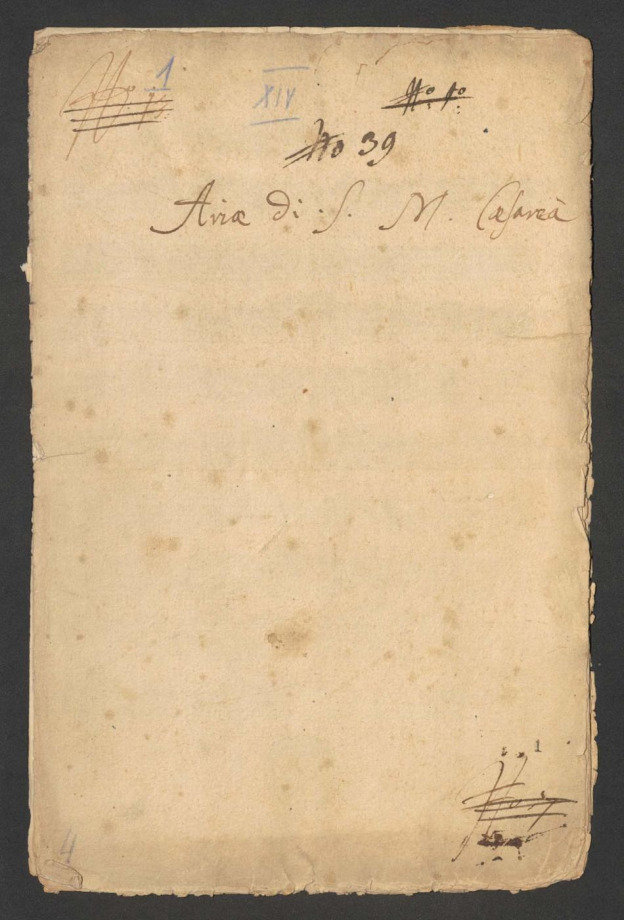 1
XIV
No 1o
No 39
Ariæ di S. M. Cæsareà
1
4